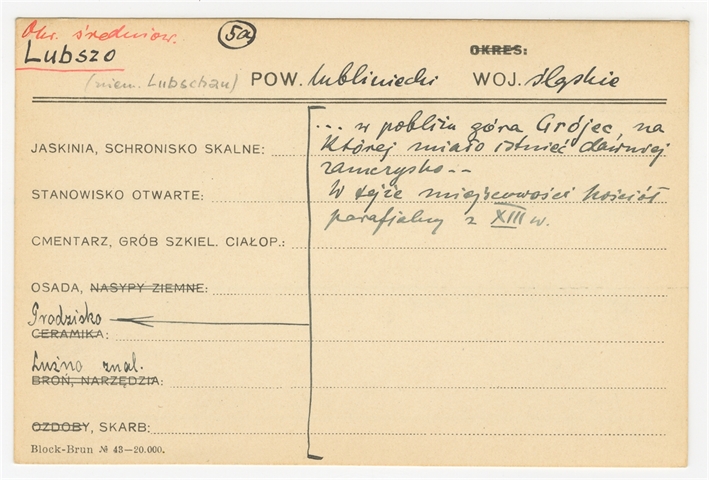 Okr. średniow.
Lubszo
5a
OKRES:
(niem. Lubschau) POW. lubliniecki WOJ. śląskie
... w pobliżu góra Grójec, na
JASKINIA, SCHRONISKO SKALNE: której miało istnieć dawniej
zamczysko --
STANOWISKO OTWARTE: W tejże miejscowości kościół
parafialny z XIII w.
CMENTARZ, GRÓB SZKIEL. CIAŁOP.:
OSADA, NASYPY ZIEMNE:
Grodzisko
CERAMIKA:
Luźno znal.
BROŃ, NARZĘDZIA:
OZDOBY, SKARB:
Block-Brun № 43—20.000.